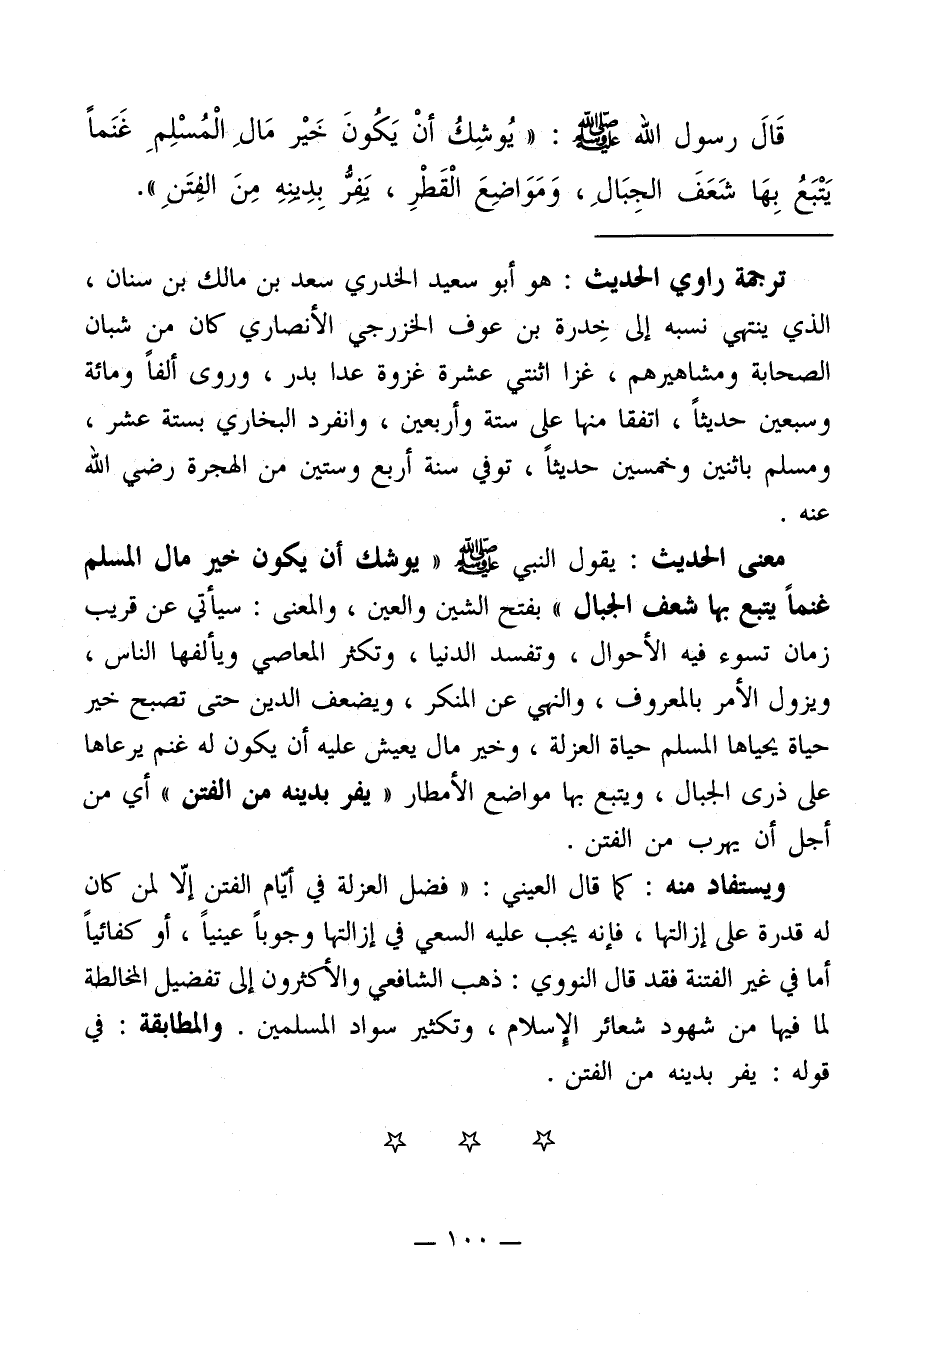 قَالَ رسول الله ﷺ : « يُوشِكُ أنْ يَكُونَ خَيْر مَالِ الْمُسْلِمِ غَنَماً
يَتْبَعُ بِهَا شَعَفَ الجِبَالِ ، وَمَوَاضِعَ الْقَطْرِ ، يَفِرُّ بِدِينِهِ مِنَ الفِتَنِ ».
ترجمة راوي الحديث : هو أبو سعيد الخدري سعد بن مالك بن سنان ،
الذي ينتهي نسبه إلى خِدرة بن عوف الخزرجي الأنصاري كان من شبان
الصحابة ومشاهيرهم ، غزا اثنتي عشرة غزوة عدا بدر ، وروى ألفاً ومائة
وسبعين حديثاً ، اتفقا منها على ستة وأربعين ، وانفرد البخاري بستة عشر ،
ومسلم باثنين وخمسين حديثاً ، توفي سنة أربع وستين من الهجرة رضي الله
عنه .
معنى الحديث : يقول النبي ﷺ « يوشك أن يكون خير مال المسلم
غنماً يتبع بها شعف الجبال » بفتح الشين والعين ، والمعنى : سيأتي عن قريب
زمان تسوء فيه الأحوال ، وتفسد الدنيا ، وتكثر المعاصي ويألفها الناس ،
ويزول الأمر بالمعروف ، والنهي عن المنكر ، ويضعف الدين حتى تصبح خير
حياة يحياها المسلم حياة العزلة ، وخير مال يعيش عليه أن يكون له غنم يرعاها
على ذرى الجبال ، ويتبع بها مواضع الأمطار « يفر بدينه من الفتن » أي من
أجل أن يهرب من الفتن .
ويستفاد منه : كما قال العيني : « فضل العزلة في أيّام الفتن إلّا لمن كان
له قدرة على إزالتها ، فإنه يجب عليه السعي في إزالتها وجوباً عينياً ، أو كفائياً
أما في غير الفتنة فقد قال النووي : ذهب الشافعي والأكثرون إلى تفضيل المخالطة
لما فيها من شهود شعائر الإسلام ، وتكثير سواد المسلمين . والمطابقة : في
قوله : يفر بدينه من الفتن .
— ١٠٠ —